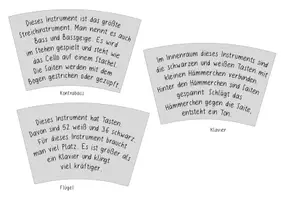 Dieses Instrument ist das größte
Streichinstrument. Man nennt es auch
Bass und Bassgeige. Es wird
im Stehen gespielt und steht wie
das Cello auf einem Stachel.
Die Saiten werden mit dem
Bogen gestrichen oder gezupft.
Kontrabass
Im Innenraum dieses Instruments sind
die schwarzen und weißen Tasten mit
kleinen Hämmerchen verbunden.
Hinter den Hämmerchen sind Saiten
gespannt. Schlägt das
Hämmerchen gegen die Saite,
entsteht ein Ton.
Klavier
Dieses Instrument hat Tasten.
Davon sind 52 weiß und 36 schwarz.
Für dieses Instrument braucht
man viel Platz. Es ist größer als
ein Klavier und klingt
viel kräftiger.
Flügel